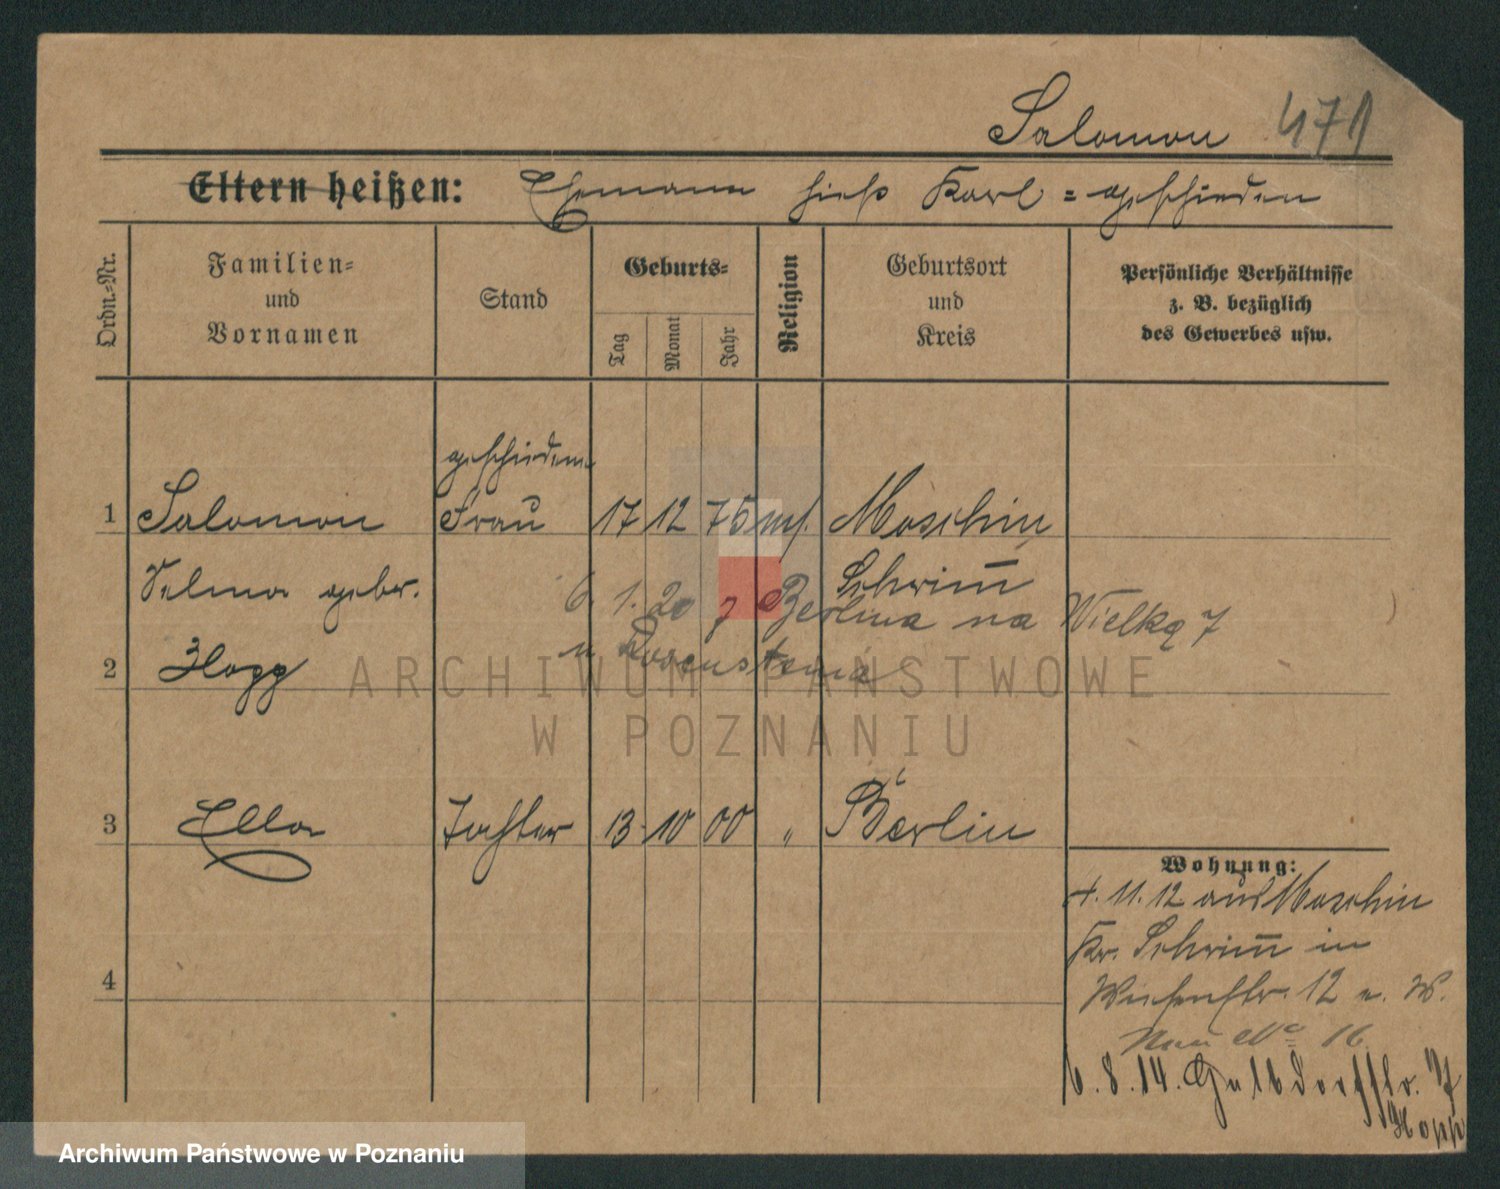 Salomon 471
Eltern heißen: Ehemann hieß Karl = geschieden
Ordn.-Nr.
Familien-
und
Vornamen
Stand
Geburts-
Tag
Monat
Jahr
Religion
Geburtsort
und
Kreis
Persönliche Verhältnisse
z. B. bezüglich
des Gewerbes usw.
geschiedene
1 Salomon Frau 17 12 75 Moschin
Selma gebr. Schrim̄
6. 1. 20 z Berlina na Wielką 7
2
3 Ella Tochter 13 10 00 " Berlin
Wohnung:
4. 11. 12 aus Moschin
Kr. Schrim̄ in
12
4
Neue No 16
6. 8. 14.
ARCHIWUM PAŃSTWOWE
W POZNANIU
Archiwum Państwowe w Poznaniu